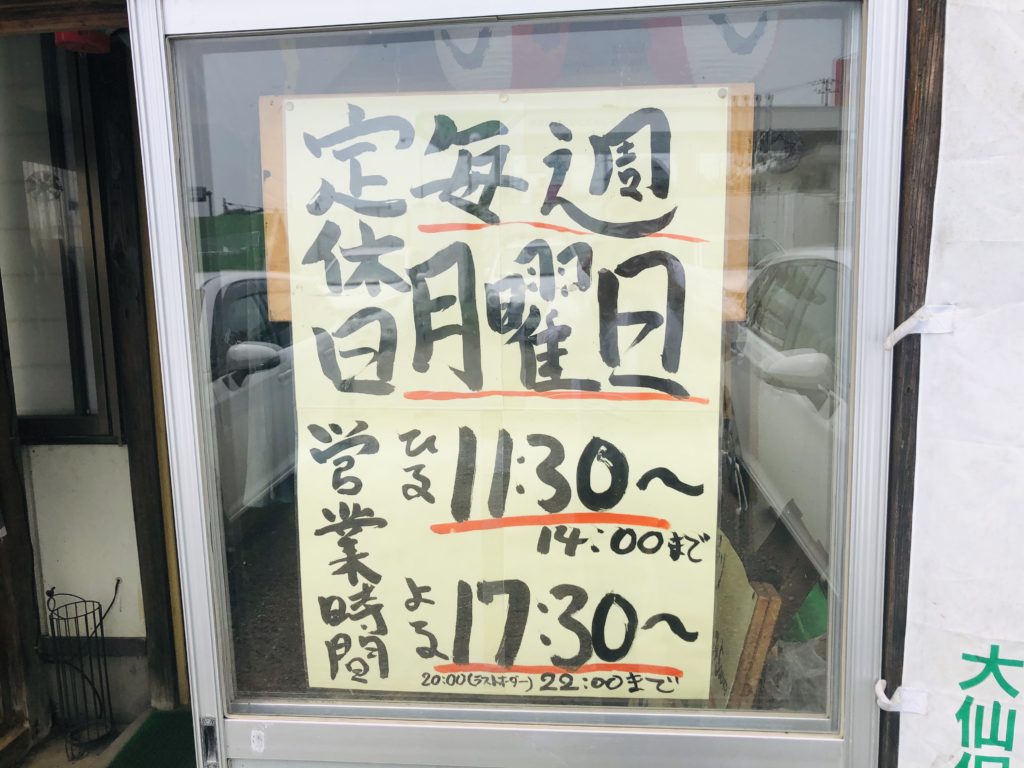 定休日
毎週
月曜日
営業時間
ひる 11:30〜
14:00まで
よる 17:30〜
20:00(ラストオーダー) 22:00まで
大仙